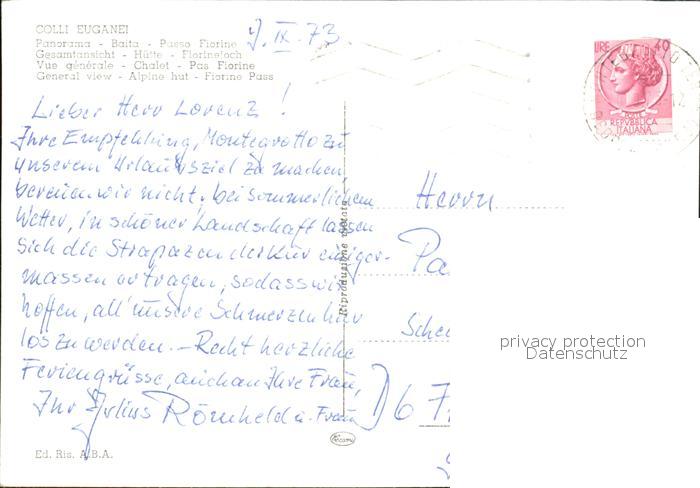 COLLI EUGANEI
Panorama - Baita - Passo Fiorine
Gesamtansicht - Hütte - Fiorinejoch
Vue générale - Chalet - Pas Fiorine
General view - Alpine hut - Fiorine Pass
9. IX. 73
LIRE 40
POSTE
REPVBBLICA
ITALIANA
Lieber Herr Lorenz!
Ihre Empfehlung, Montegrotto zu
unserem Urlaubsziel zu machen,
bereuen wir nicht, bei sommerlichem
Wetter, in schöner Landschaft lassen
sich die Strapazen der Kur einiger-
massen ertragen, sodass wir
hoffen, all' unsere Schmerzen hier
los zu werden. - Recht herzliche
Feriengrüsse, auch an Ihre Frau,
Ihr Julius Römheld u. Frau
Riproduzione vietata
Herrn
Pa
Sche
D 67
privacy protection
Datenschutz
Ed. Ris. A.B.A.